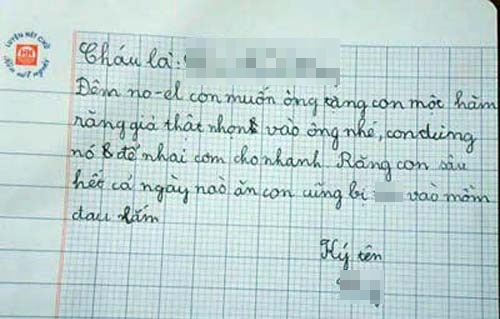 LUYỆN NÉT CHỮ
HH
Rèn nết người
Cháu là:
Đêm no-el con muốn ông tặng con một hàm
răng giả thật nhọn vào ông nhé, con dùng
nó để nhai cơm cho nhanh. Răng con sâu
hết cả ngày nào ăn con cũng bị vào mồm
đau lắm
Ký tên